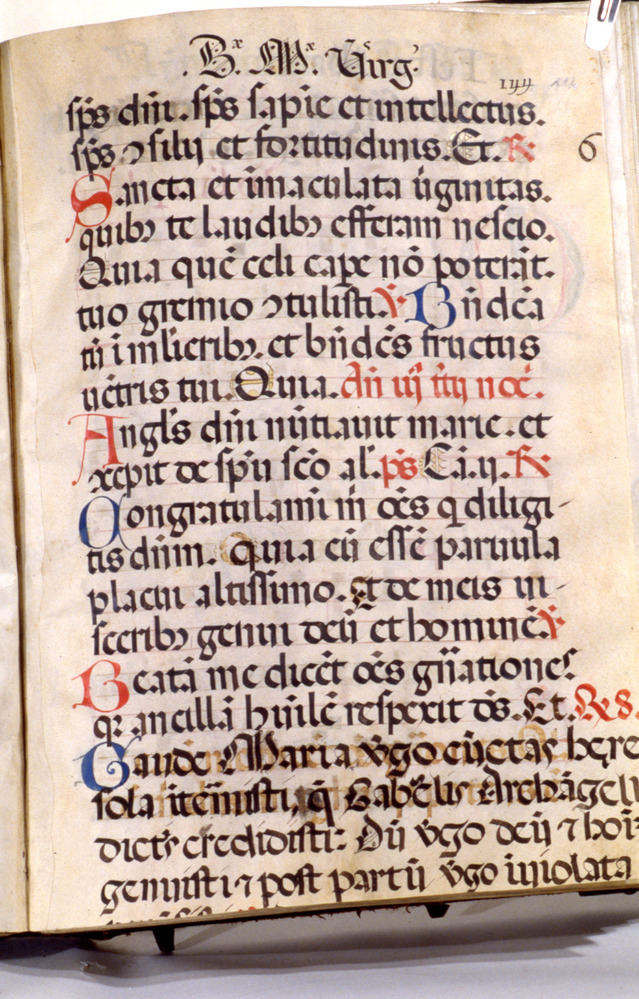 .Bˣ. Mˣ. Virg̃.
144
sp̄s dn̄i. sp̄s sapīe et intellectus.
sp̄s ꝯsilij et fortitudinis. Et. ℟
6
Sancta et īmaculata ũginitas.
quibꝰ te laudibꝰ efferam nescio.
Quia quē celi cape nō poterāt.
tuo gremio ꝯtulisti. ℣ Bn̄dc̄a
tū ī mĺieribꝰ. et bn̄dc̄s fructus
uētris tui. Quia. An̄ iij tīj noc̄.
Angĺs dn̄i nūtiauit marie. et
ꝯcepit de spū scō al. ps̄ Cā. ij. ℟
Congratulamī m̄ oēs q diligi-
tis dnīm. Quia cū essē paruula
placui altissimo. et de meis ui-
sceribꝰ genui deū et hominē. ℣
Beatā me dicēt oēs gn̄ationes
qꝛ ancillā hūilē respexit ds̄. Et. ℟ 8.
Gaude Maria v̄go cūctas here
sola īterēmisti, q̄ Gabrĕlis Archāgeli
dictis credidisti: Dū v̄go deū ⁊ hoīꝫ
genuisti ⁊ post partū v̄go īuiolata